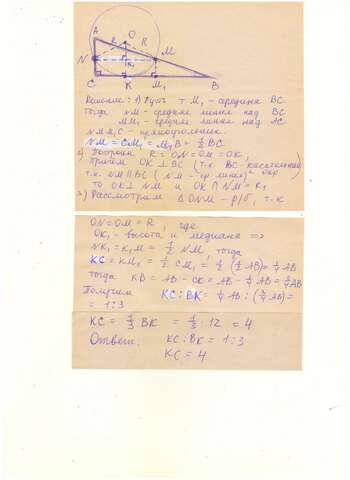 A
O
R
R
M
N
K₁
C
K
M₁
B
Решение: 1) Пусть т. M₁ - середина BC
Тогда NM - средняя линия над BC
MM₁ - средняя линия над AC
NMM₁C - прямоугольник.
NM = CM₁ = M₁B = ½ BC
2) Построим R = ON = OM = OK,
причём OK ⊥ BC (т.к. BC - касательная)
т.к. NM || BC (NM - ср линия) окр
то OK ⊥ NM и OK ∩ NM = K₁
3) Рассмотрим Δ ONM - р/б, т.к
ON = OM = R, где
OK₁ - высота и медиана =>
NK₁ = K₁M = ½ NM, тогда
KC = KM₁ = ½ CM₁ = ½ (½ AB) = ¼ AB
тогда KB = AB - CK = AB - ¼ AB = ¾ AB
Получим KC : BK = ¼ AB : (¾ AB) =
= 1 : 3
KC = ⅓ BK = ⅓ · 12 = 4
Ответ: KC : BK = 1 : 3
KC = 4